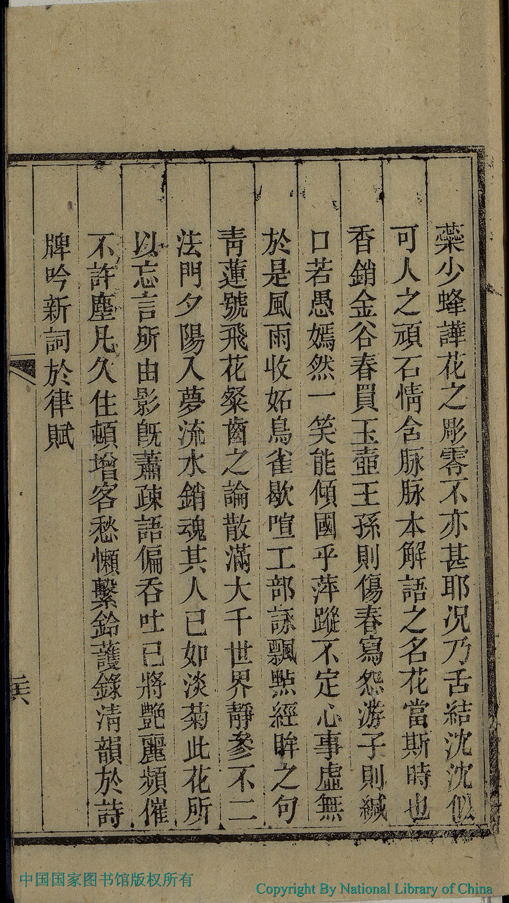 蘂少蜂譁花之彫零不亦甚耶况乃舌結沈沈似
可人之頑石情含脉脉本解語之名花當斯時也
香銷金谷春買玉壺王孫則傷春寫怨游子則緘
口若愚嫣然一笑能傾國乎萍蹤不定心事虛無
於是風雨收妬鳥雀歇喧工部詠飄㸃經眸之句
靑蓮號飛花粲齒之論散滿大千世界靜參不二
法門夕陽入夢流水銷魂其人已如淡菊此花所
以忘言所由影旣蕭疎語偏吞吐已將艷麗頻催
不許塵凡久住頓增客愁懶繫鈴護錄淸韻於詩
牌吟新詞於律賦
中国国家图书馆版权所有
Copyright By National Library of China